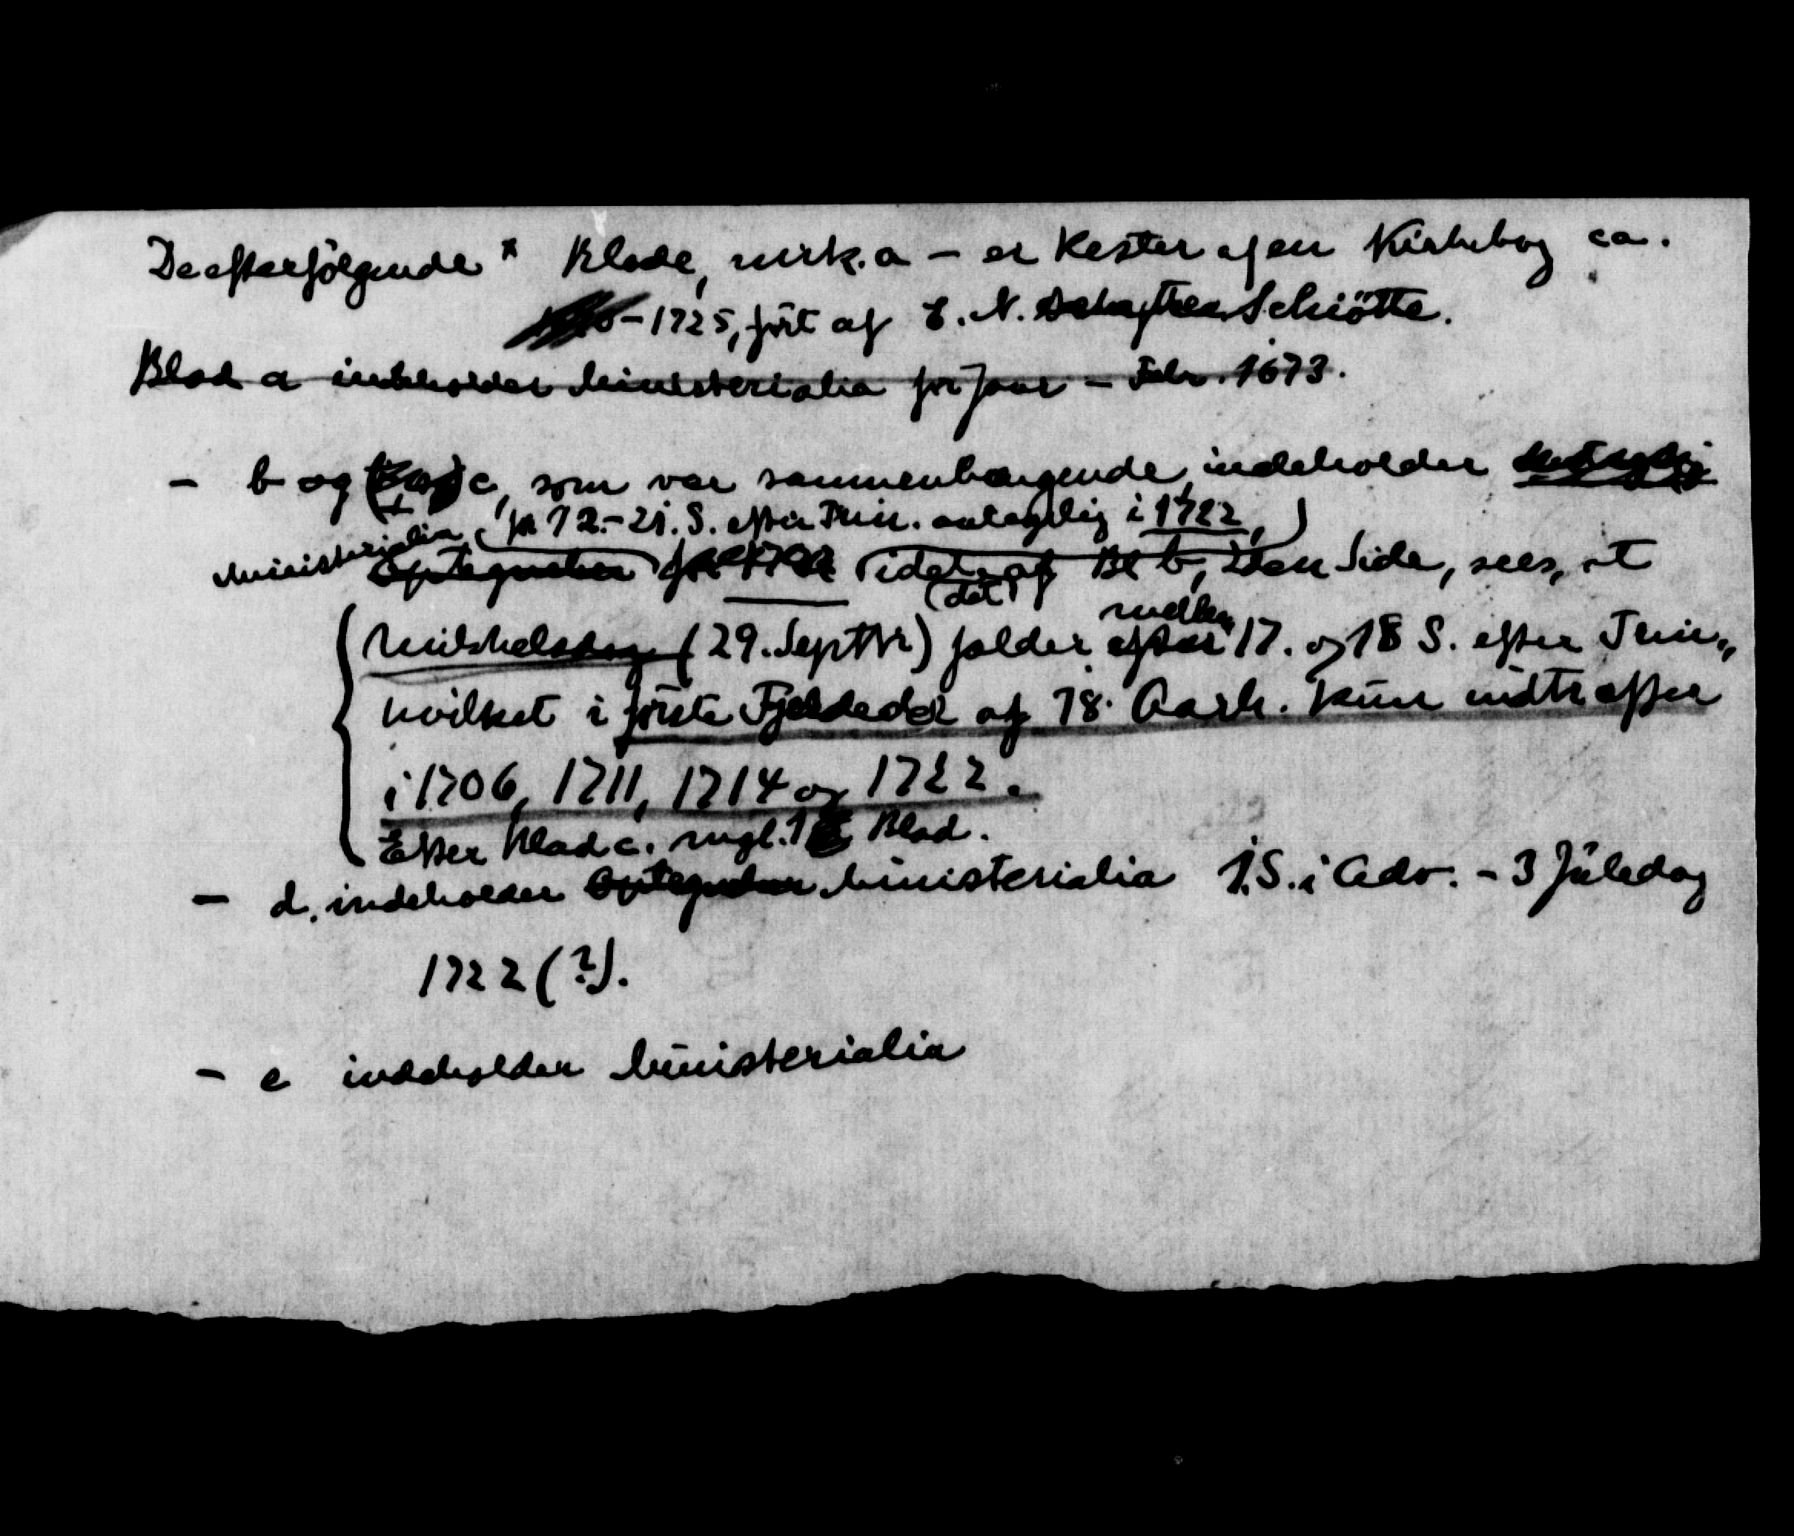 De efterfölgende x Blade, mrk. a – er Rester af en Kirkebog ca.
– 1725, fört af E. N. Schiötte.
Blad a indeholder Ministerialia for Jan – Febr. 1673.
– b og c, som var sammenhængende, indeholder
Ministerialia (fra 12.–21. S. efter Trin. antagelig i 1722,)
Optegnelser (idet af Bl b, 2den Side, sees, at
(det)
mellem
Mikkelsdag (29. Septbr) falder efter 17. og 18 S. efter Trin.,
hvilket i förste Fjerdedel af 18. Aarh. kun indtræffer
i 1706, 1711, 1714 og 1722.
Efter Blad c. mgl. 1 Blad.
– d. indeholder Optegnelser Ministerialia 1. S. i Adv. – 3 Juledag
1722 (?).
– e indeholder Ministerialia